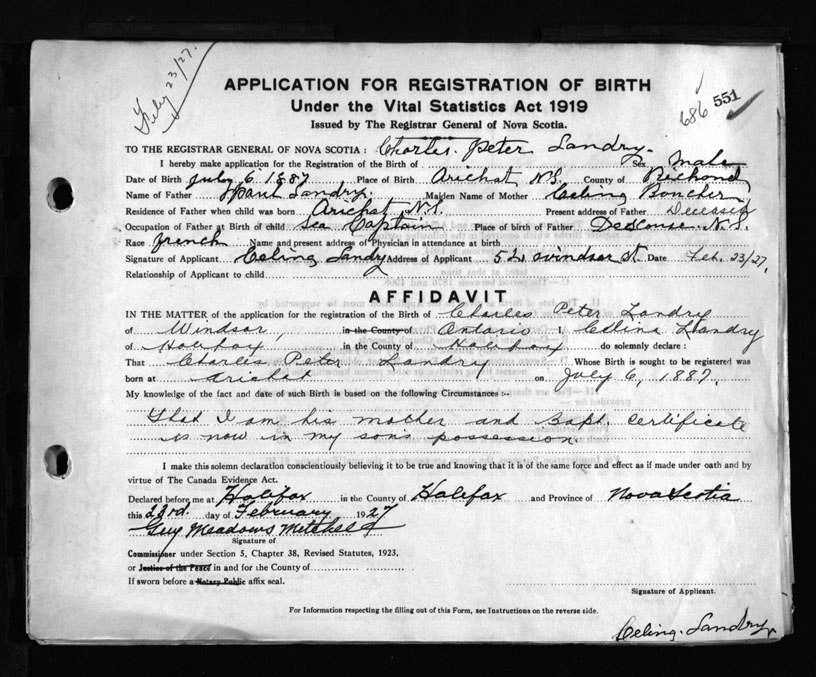 Feby 23/27.
686 551
APPLICATION FOR REGISTRATION OF BIRTH
Under the Vital Statistics Act 1919
Issued by The Registrar General of Nova Scotia.
TO THE REGISTRAR GENERAL OF NOVA SCOTIA: Charles Peter Landry.
I hereby make application for the Registration of the Birth of Sex Male
Date of Birth July 6 1887 Place of Birth Arichat N.S. County of Richmond
Name of Father Landry. Maiden Name of Mother Celina Boucher
Residence of Father when child was born Arichat N.S. Present address of Father Deceased
Occupation of Father at Birth of child Sea Captain Place of birth of Father Descouse N.S.
Race French Name and present address of Physician in attendance at birth
Signature of Applicant Celina Landry Address of Applicant Windsor St. Date Feb. 23/27.
Relationship of Applicant to child
AFFIDAVIT
IN THE MATTER of the application for the registration of the Birth of Charles Peter Landry
of Windsor, in the County of Ontario I Celina Landry
of Halifax in the County of Halifax do solemnly declare:
That Charles Peter Landry Whose Birth is sought to be registered was
born at Arichat on July 6, 1887.
My knowledge of the fact and date of such Birth is based on the following Circumstances:-
That I am his mother and Bapt. Certificate
is now in my sons possession.
I make this solemn declaration conscientiously believing it to be true and knowing that it is of the same force and effect as if made under oath and by
virtue of The Canada Evidence Act.
Declared before me at Halifax in the County of Halifax and Province of Nova Scotia
this 23rd. day of February 1927
Guy Meadows Mitchell
Signature of
Commissioner under Section 5, Chapter 38, Revised Statutes, 1923.
or Justice of the Peace in and for the County of
If sworn before a Notary Public affix seal.
Signature of Applicant.
For Information respecting the filling out of this Form, see Instructions on the reverse side.
Celina Landry